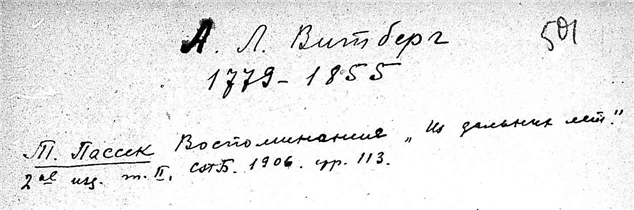 А. Л. Витберг
501
1779 – 1855
Т. Пассек Воспоминание „Из дальних лет."
2ое изд. т. II. СПБ. 1906. стр. 113.